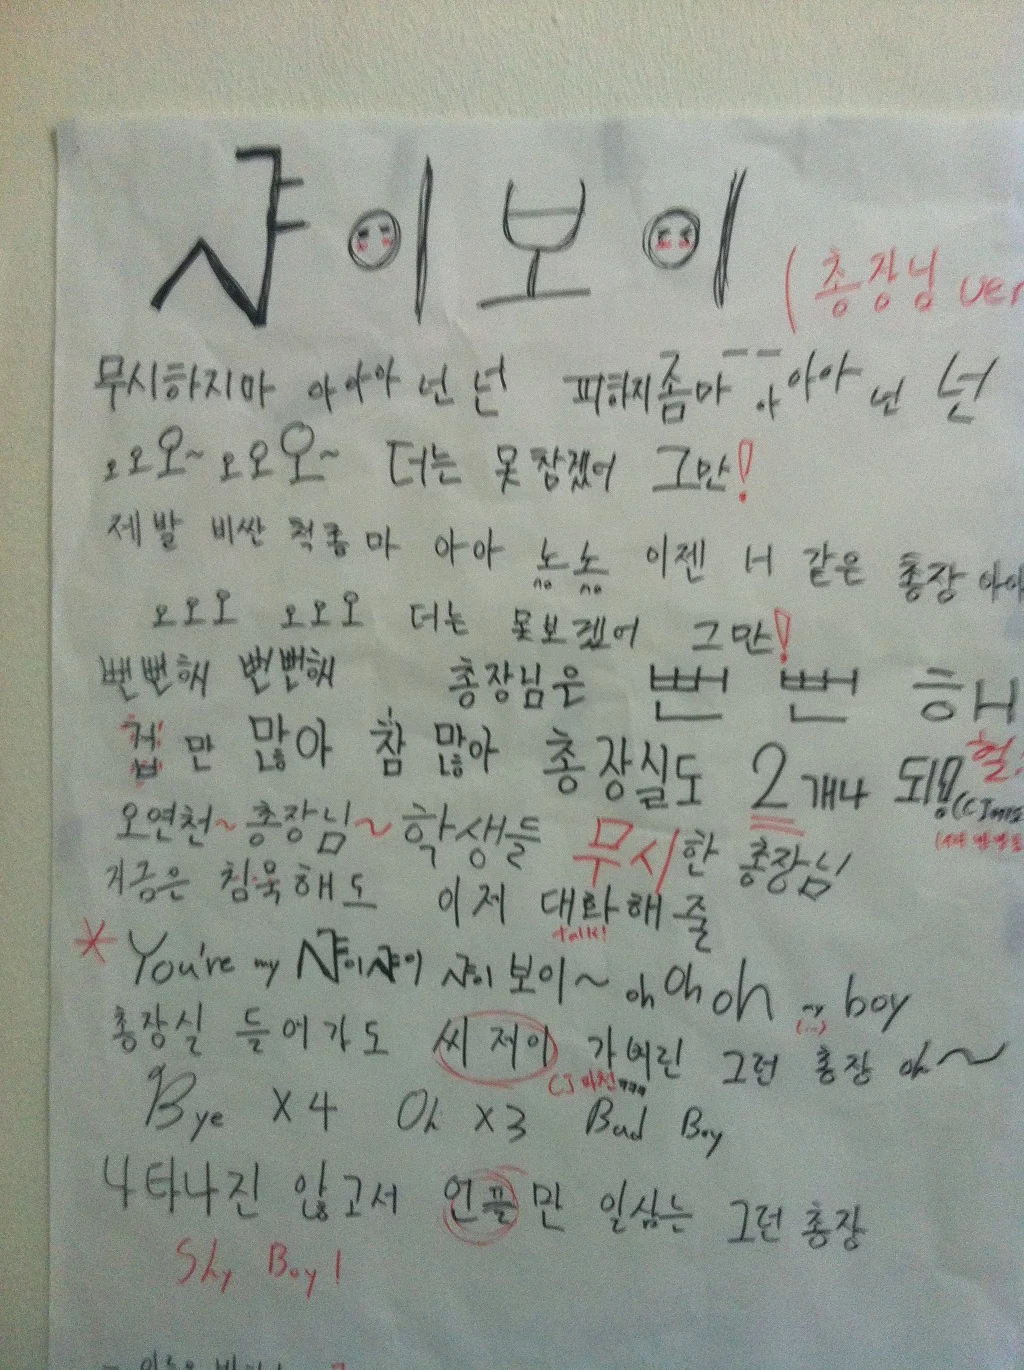 샤이보이
(총장님 ver
무시하지마 아아아 넌 넌 피하지좀마 -- 아아아 넌 넌
오오오~ 오오오~ 더는 못참겠어 그만!
제발 비싼척좀 마 아아 노노 이젠 너 같은 총장 아아
no no
오오오 오오오 더는 못보겠어 그만!
뻔뻔해 뻔뻔해 총장님은 뻔뻔해
겁만 많아 참 많아 총장실도 2개나 돼!
오연천~총장님~학생들 무시한 총장님
지금은 침묵해도 이제 대화해 줄
talk!
* You're my 샤이샤이 샤이 보이~ oh oh oh my boy
총장실 들어가도 씨제이 가버린 그런 총장 oh~
Bye X4 Oh X3 Bad Boy
나타나진 않고서 언플만 일삼는 그런 총장
Shy Boy!